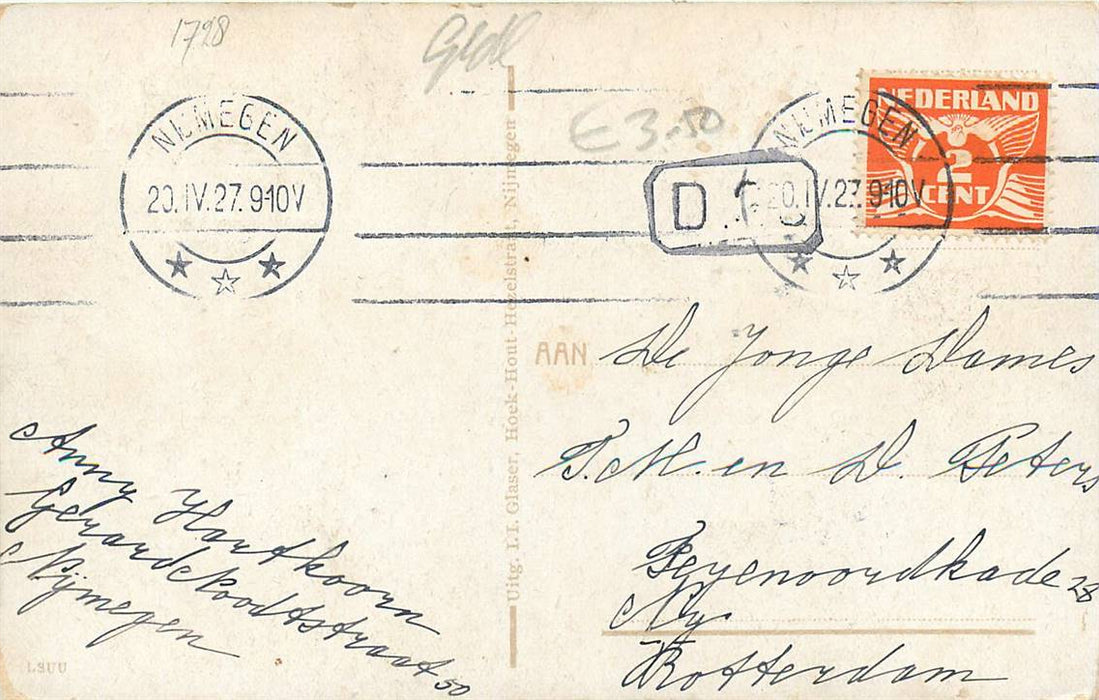 1728
Geld
E 3.50
NIJMEGEN
20.IV.27. 9-10V
NIJMEGEN
20.IV.27. 9-10V
NEDERLAND
2
CENT
D
Uitg. I.I. Glaser, Hoek-Hout-Hezelstraat, Nijmegen
AAN
De Jonge Dames
T. M. en D. Peters
Feyenoordkade 28
Ny.
Rotterdam
Anny Hartkoorn
Gerardsnoodtstraat 50
Nijmegen